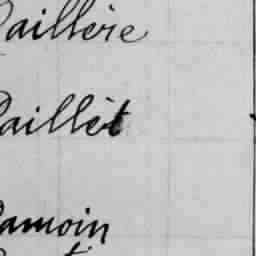 Paillère
Paillet
Pamoin